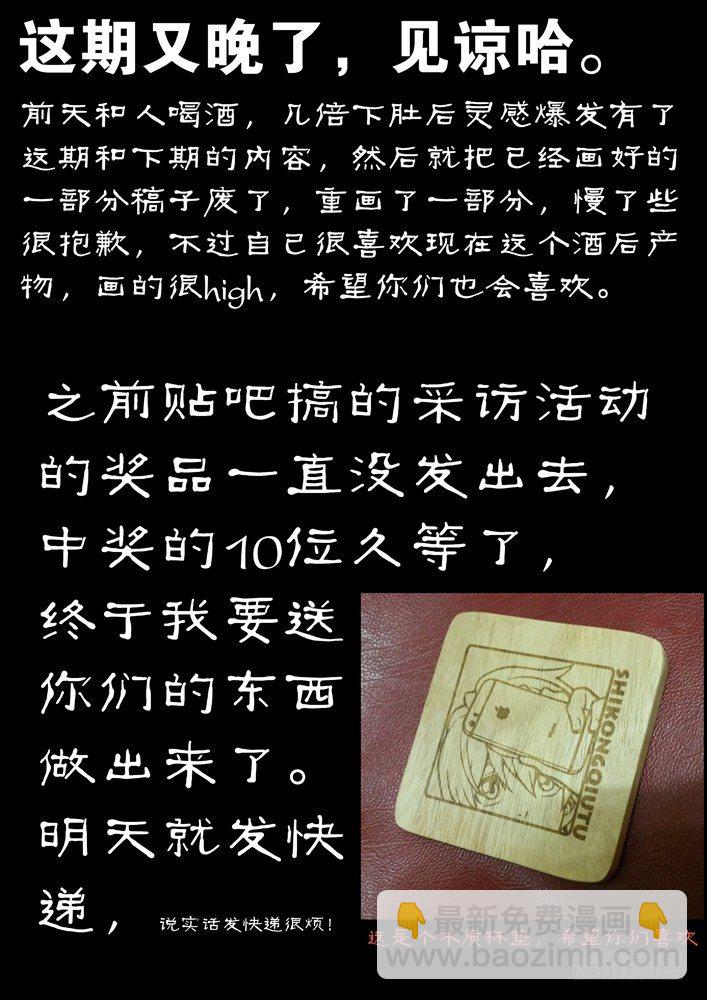 这期又晚了，见谅哈。
前天和人喝酒，几倍下肚后灵感爆发有了
这期和下期的内容，然后就把已经画好的
一部分稿子废了，重画了一部分，慢了些
很抱歉，不过自己很喜欢现在这个酒后产
物，画的很high，希望你们也会喜欢。
之前贴吧搞的采访活动
的奖品一直没发出去，
中奖的10位久等了，
终于我要送
你们的东西
做出来了。
明天就发快
递，说实话发快递很烦！
SHIKONGQIUTU
这是个木质杯垫，希望你们喜欢
👇最新免费漫画👇
www.baozimh.com